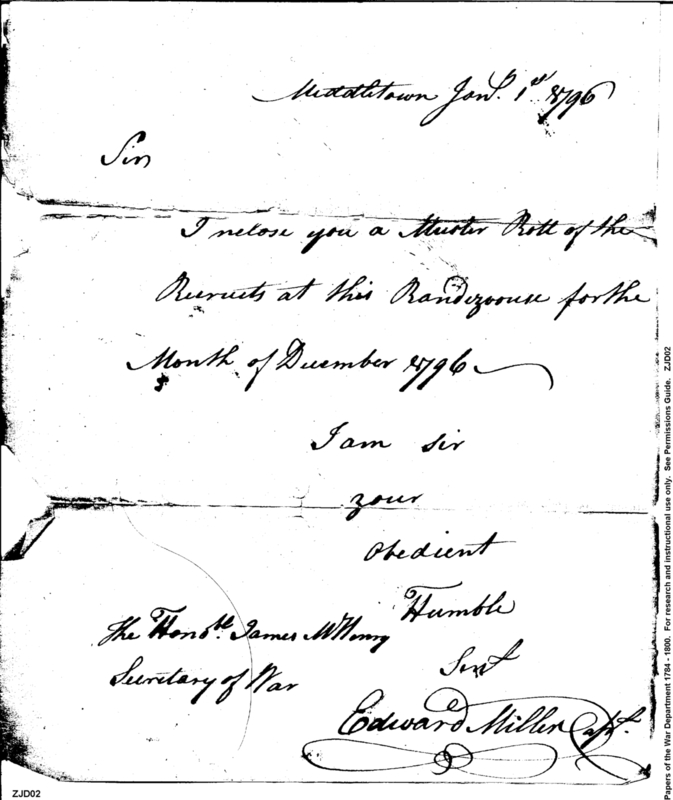 Middletown Jany. 1st 1796
Sir
I nclose you a Muster Roll of the
Recruits at this Randizvouse for the
Month of December 1796
I am sir
your
obedient
Humble
Servt
The Honoble. James McHenry
Secretary of War
Edward Miller Capt.
ZJD02
Papers of the War Department 1784 - 1800. For research and instructional use only. See Permissions Guide. ZJD02